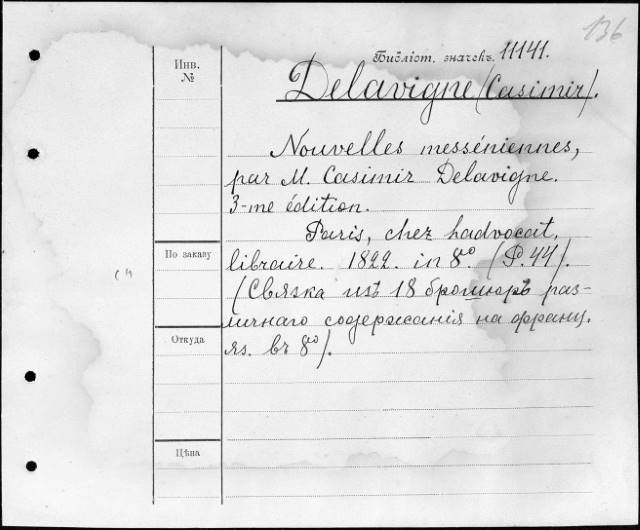 136
Инв.
№
Библіот. значекъ. 11141.
Delavigne (Casimir).
Nouvelles messéniennes,
par M. Casimir Delavigne.
3-me édition.
Paris, chez hadvocat,
По заказу
libraire. 1822. in 8º. (P. 44).
(Связка изъ 18 брошюръ раз-
личнаго содержанія на франц.
Откуда
яз. въ 8º).
Цѣна